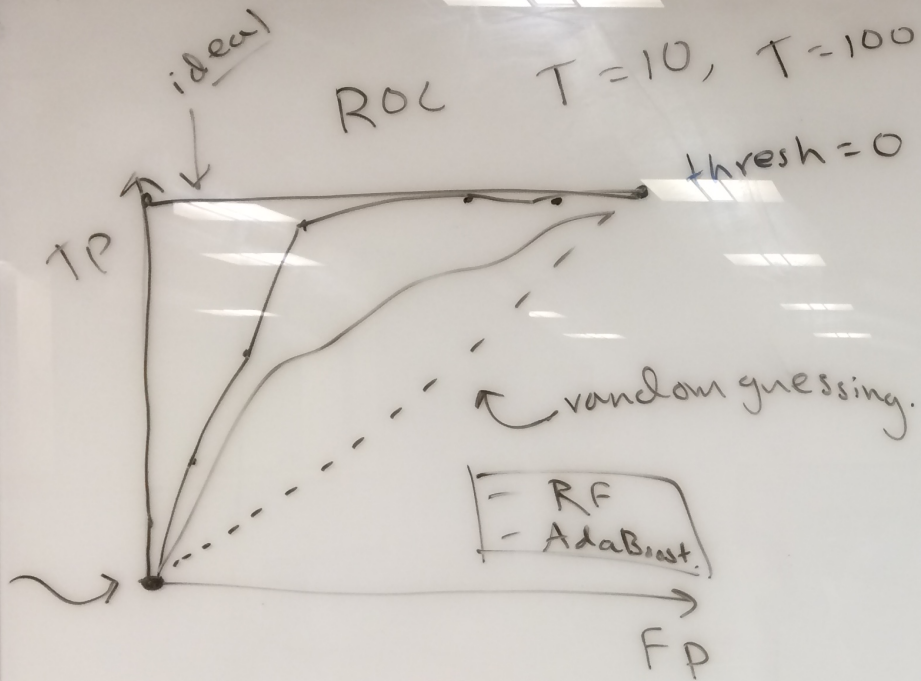 ideal
ROC T = 10, T = 100
thresh = 0
TP
random guessing.
- RF
- AdaBoost.
FP